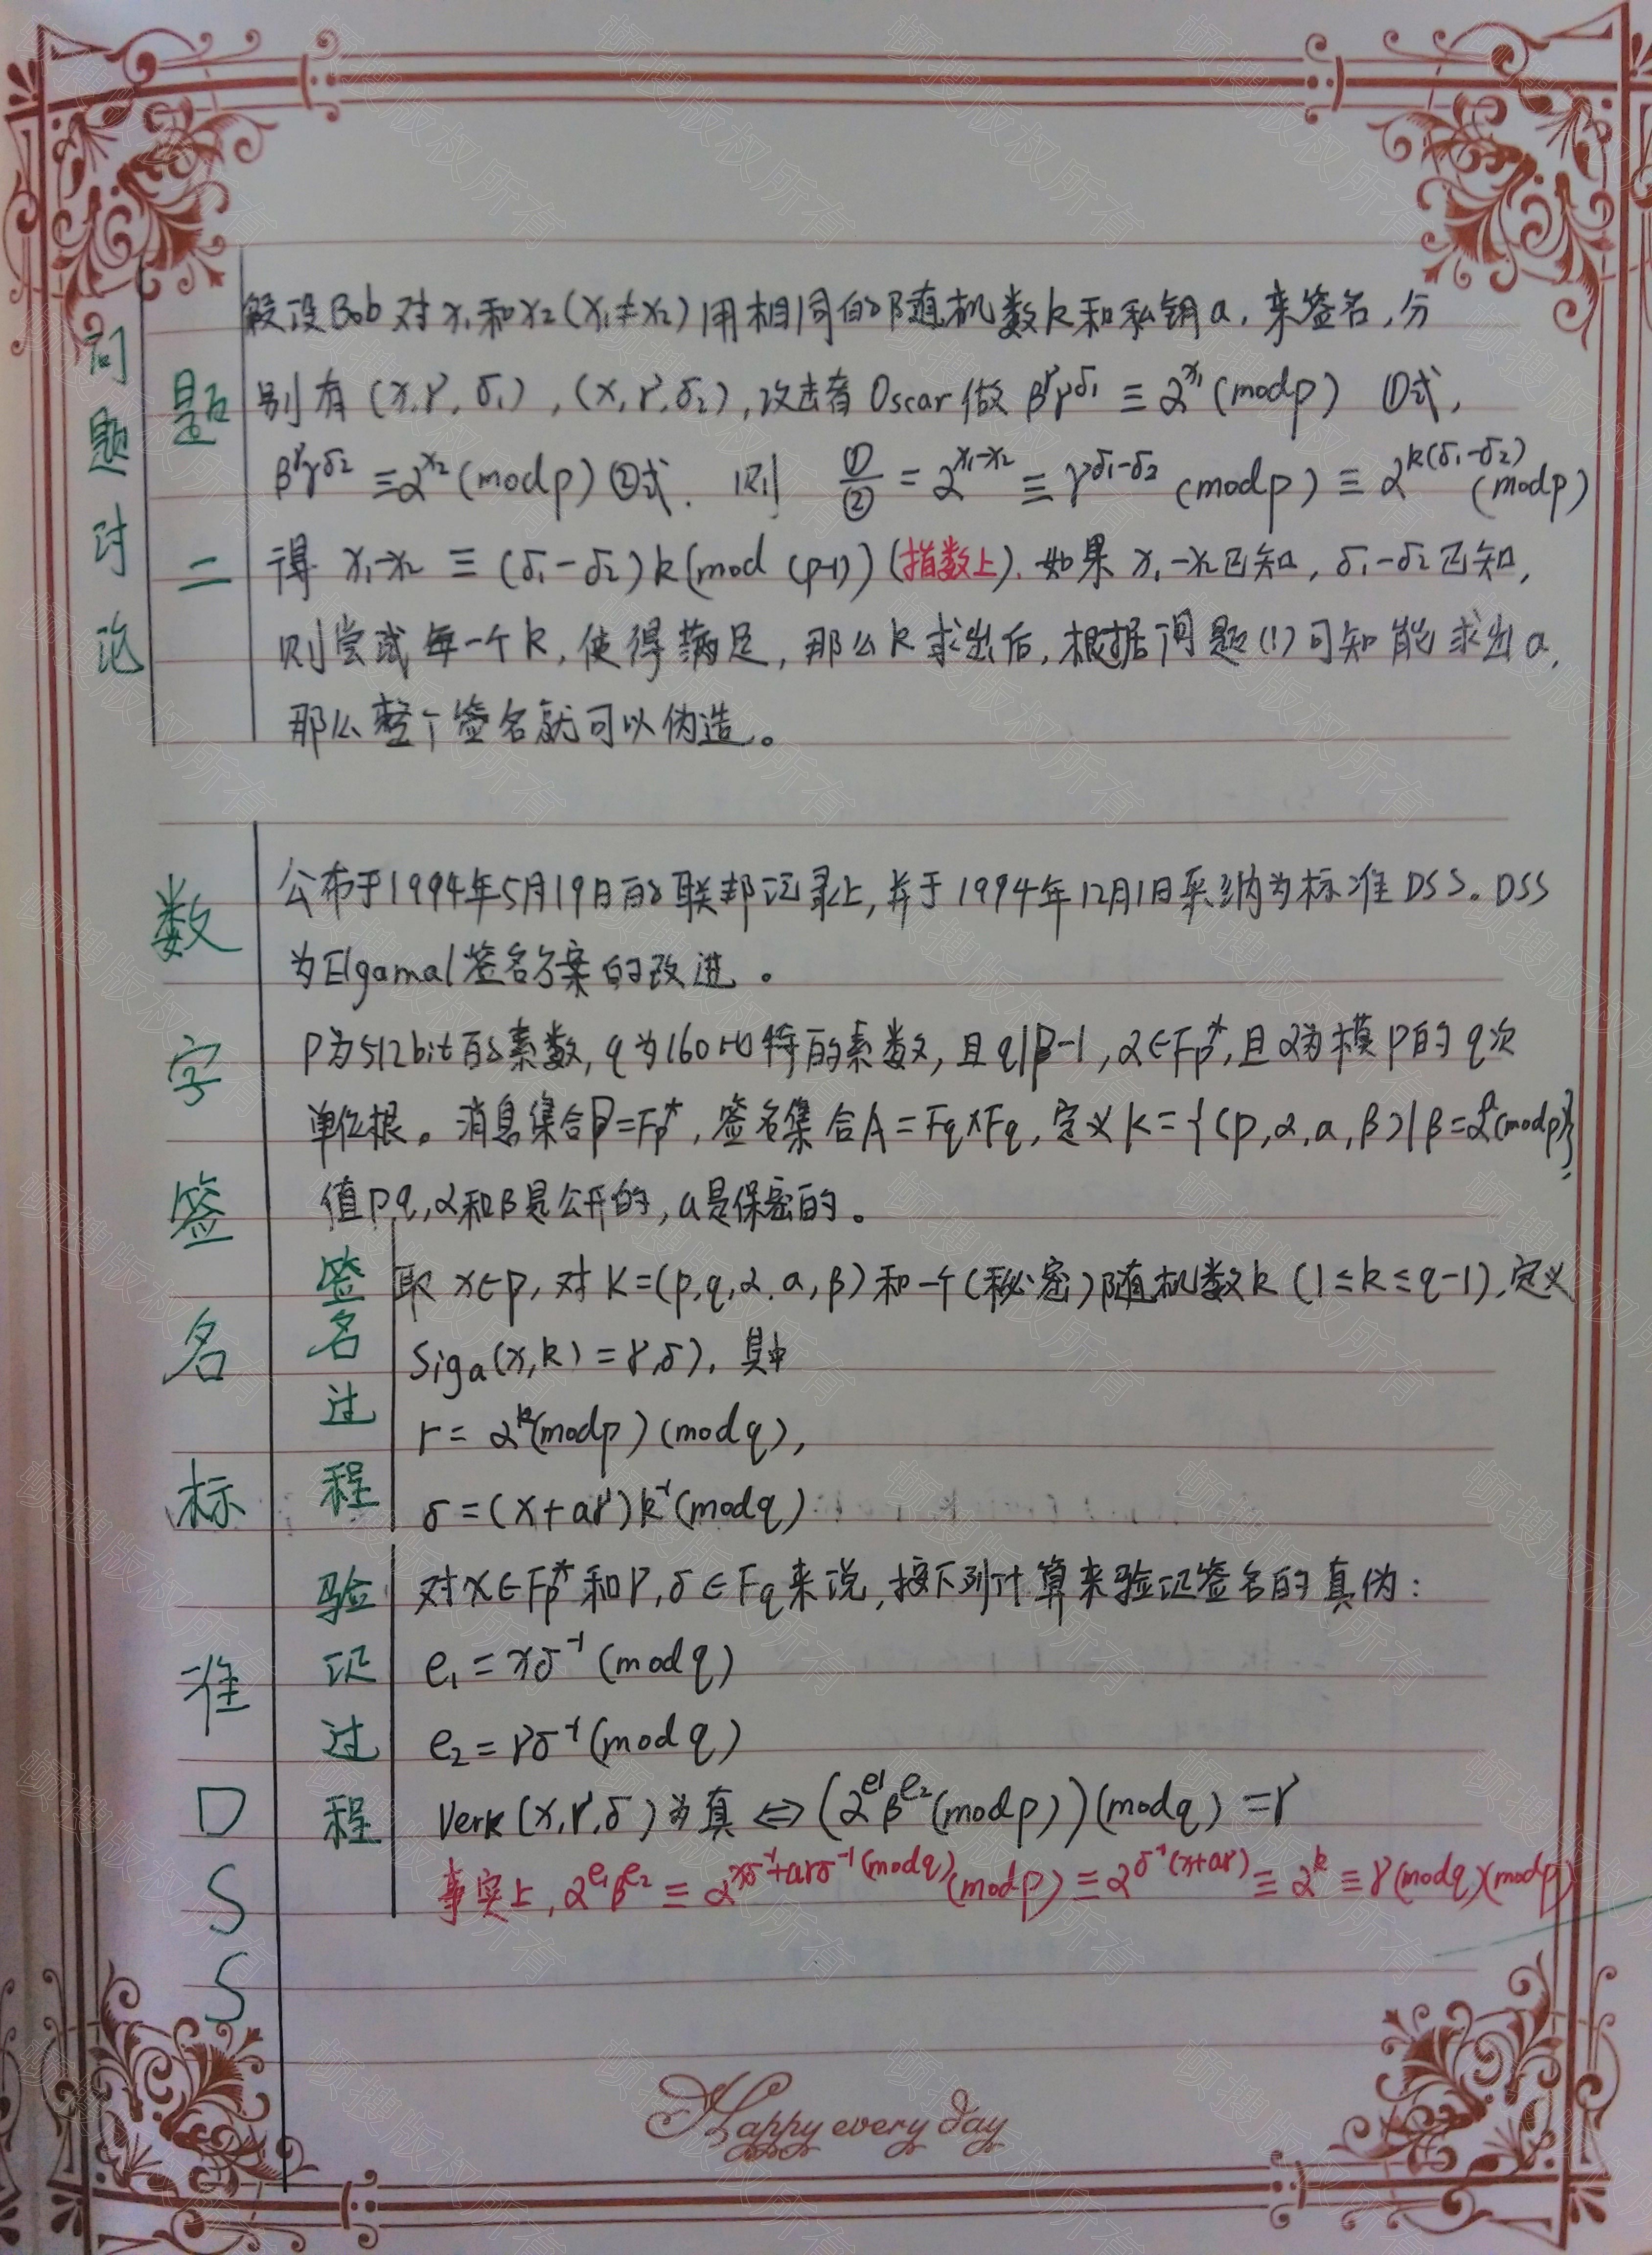 问题讨论
题二
假设Bob对x₁和x₂(x₁≠x₂)用相同的随机数k和私钥a,来签名,分
别有(x,γ,δ₁),(x,γ,δ₂),攻击者Oscar做 β^γγ^δ₁≡α^x₁(modp) ①式,
β^γγ^δ₂≡α^x₂(modp)②式. 则 ①/②=α^(x₁-x₂)≡γ^(δ₁-δ₂)(modp)≡α^(k(δ₁-δ₂))(modp)
得 x₁-x₂≡(δ₁-δ₂)k(mod(p-1))(指数上).如果x₁-x₂已知,δ₁-δ₂已知,
则尝试每一个k,使得满足,那么k求出后,根据问题(1)可知能求出a,
那么整个签名就可以伪造。
数字签名标准DSS
公布于1994年5月19日的联邦记录上,并于1994年12月1日采纳为标准DSS。DSS
为Elgamal签名方案的改进。
P为512bit的素数,q为160比特的素数,且q|p-1,α∈Fp*,且α为模P的q次
单位根。消息集合P=Fp*,签名集合A=Fq×Fq,定义k={(p,α,a,β)|β=α^a(modp)}
值p,q,α和β是公开的,a是保密的。
签名过程
取x∈p,对K=(p,q,α,a,β)和一个(秘密)随机数k(1≤k≤q-1),定义
Sigₐ(x,k)=γ,δ),其中
r=α^k(modp)(modq),
δ=(x+aγ)k⁻¹(modq)
验证过程
对x∈Fp*和γ,δ∈Fq来说,按下列计算来验证签名的真伪:
e₁=xδ⁻¹(modq)
e₂=γδ⁻¹(modq)
Verk(x,γ,δ)为真⇔(α^e₁β^e₂(modp))(modq)=γ
事实上,α^e₁β^e₂≡α^(xδ⁻¹+aγδ⁻¹(modq))(modp)≡α^(δ⁻¹(x+aγ))≡α^k≡γ(modq)(modp)
Happy every day
硕搜版权所有